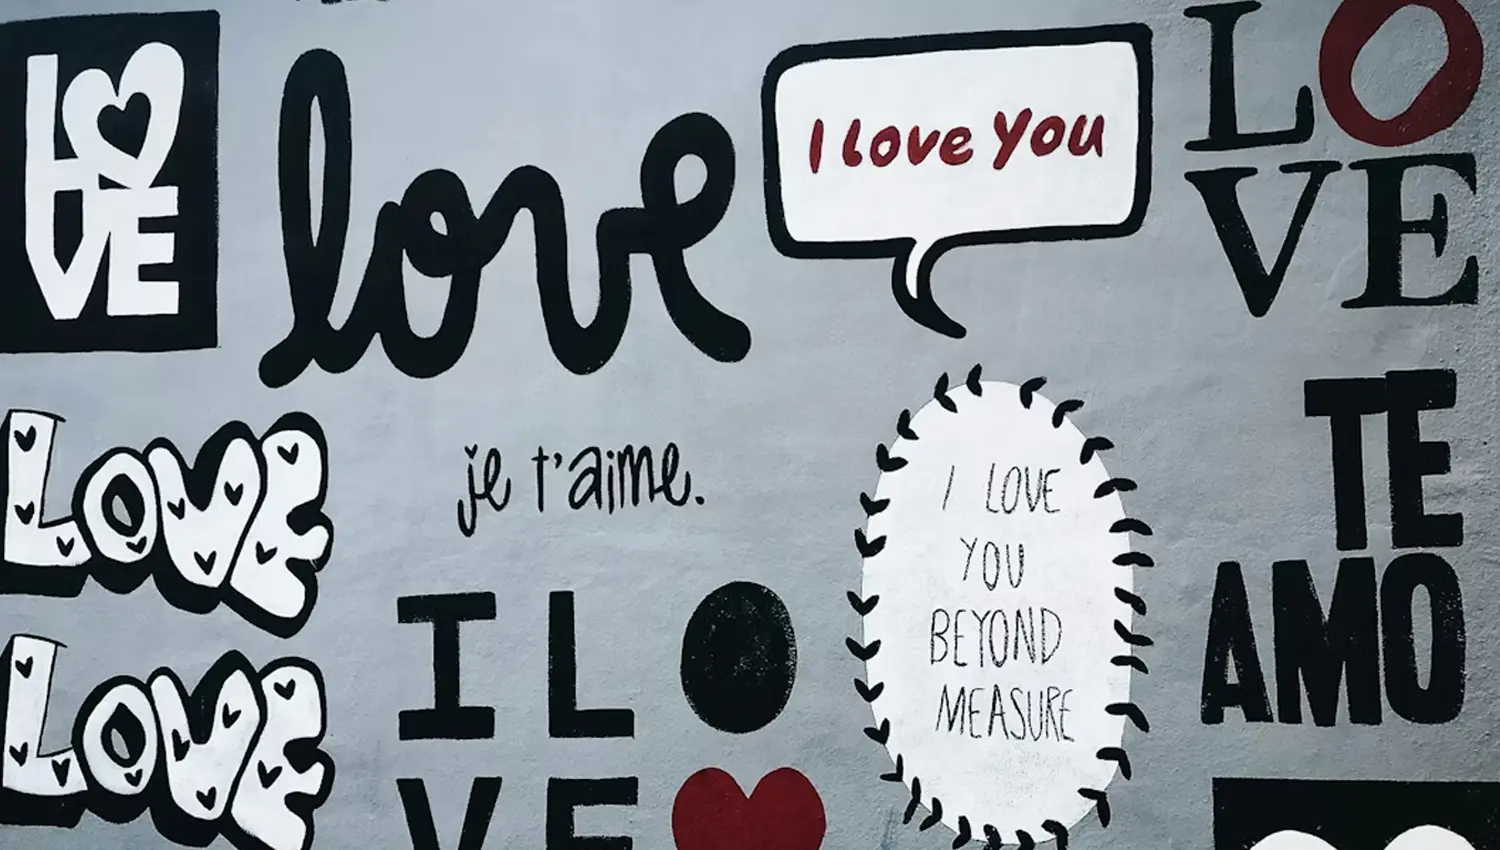 LO
VE
love
I love You
LO
VE
LOVE
je t'aime.
I LOVE
YOU
BEYOND
MEASURE
TE
AMO
I L O
V E
LOVE